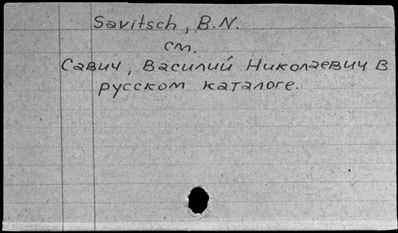 Savitsch, B.N.
см.
Савич, Василий Николаевич в
русском каталоге.